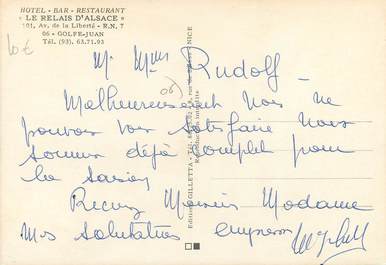 HOTEL - BAR - RESTAURANT
« LE RELAIS D'ALSACE »
101, Av. de la Liberté - R.N. 7
06 - GOLFE-JUAN
Tél. (93). 63.71.93
10 €
M. Mme Rudolf
(06)
Malheureusement nous ne
pouvons vous satisfaire nous
sommes déjà complet pour
la saison
Recevez Monsieur Madame
mes salutations
Editions GILLETTA - NICE
Reproduction interdite